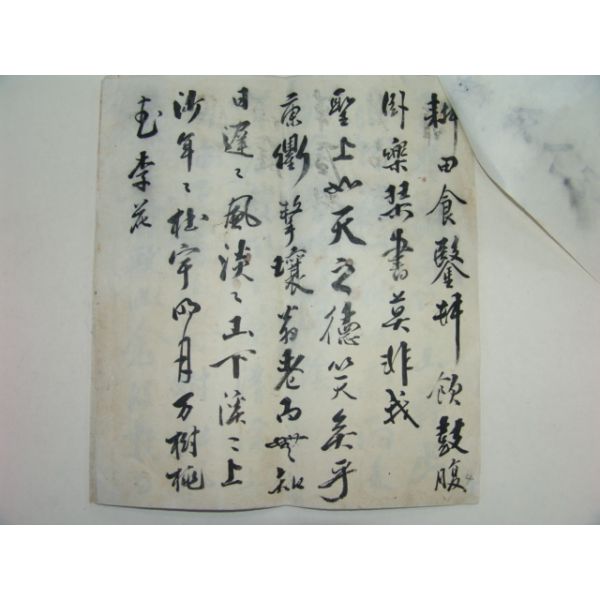 耕田食鑿井飲鼓腹
卧樂琴書莫非我
聖上如天之德笑矣乎
康衢擊壤翁老而無知
日遲〻風淡〻山下溪〻上
沙年〻桂宇明月万樹桃
花李花